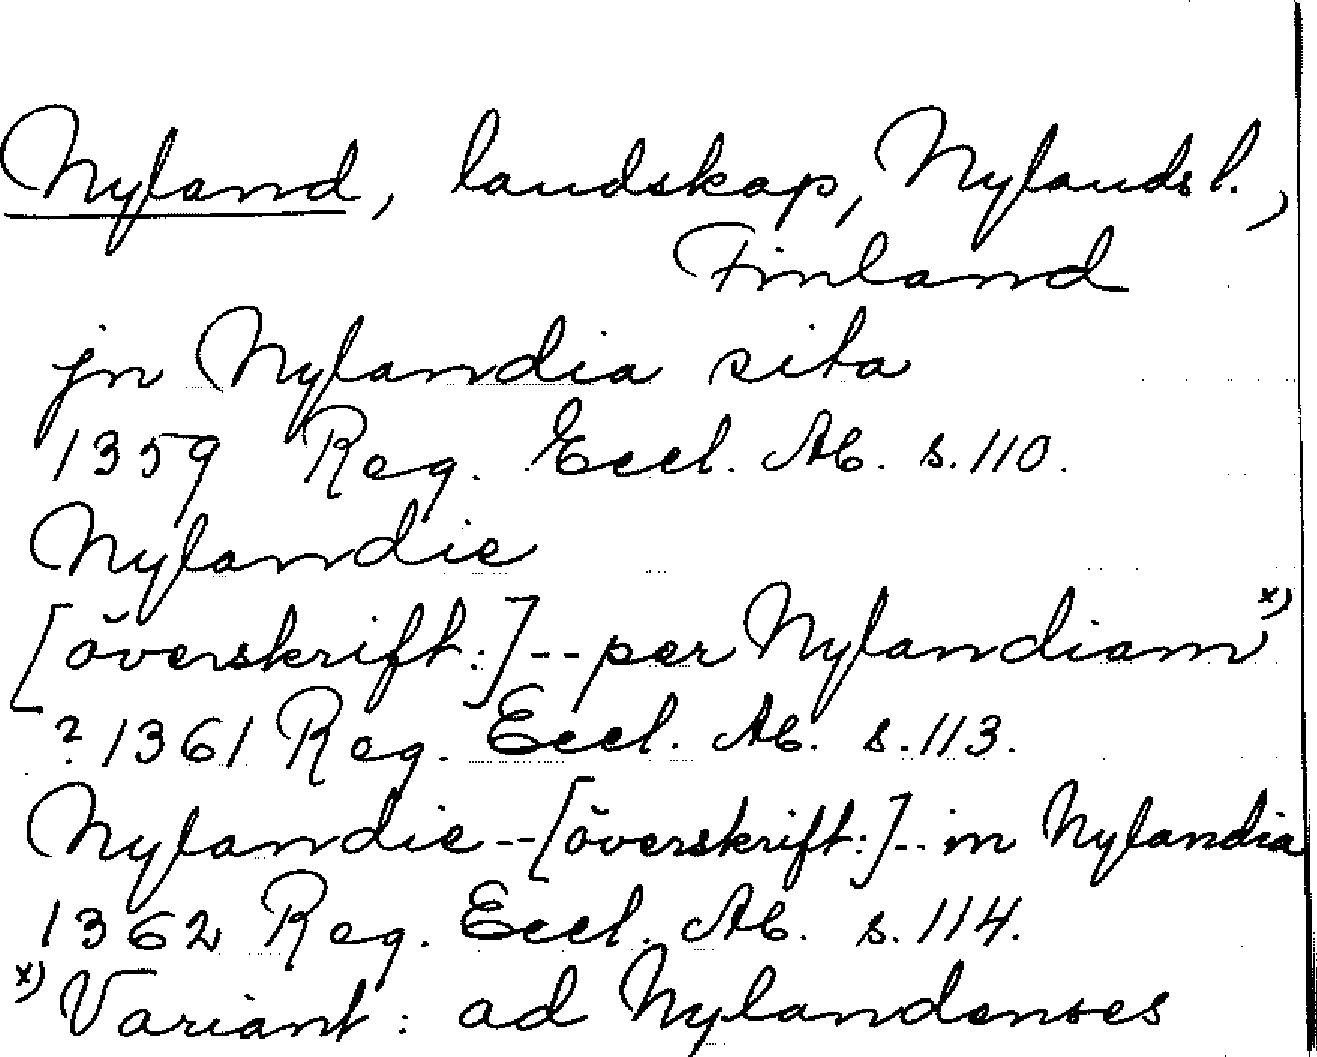 Nyland, landskap, Nylands l.,
Finland
jn Nylandia sita
1359 Reg. Eccl. Ab. s. 110.
Nylandie
[överskrift:] -- per Nylandiam x)
? 1361 Reg. Eccl. Ab. s. 113.
Nylandie -- [överskrift:] -- in Nylandia
1362 Reg. Eccl. Ab. s. 114.
x) Variant: ad Nylandenses